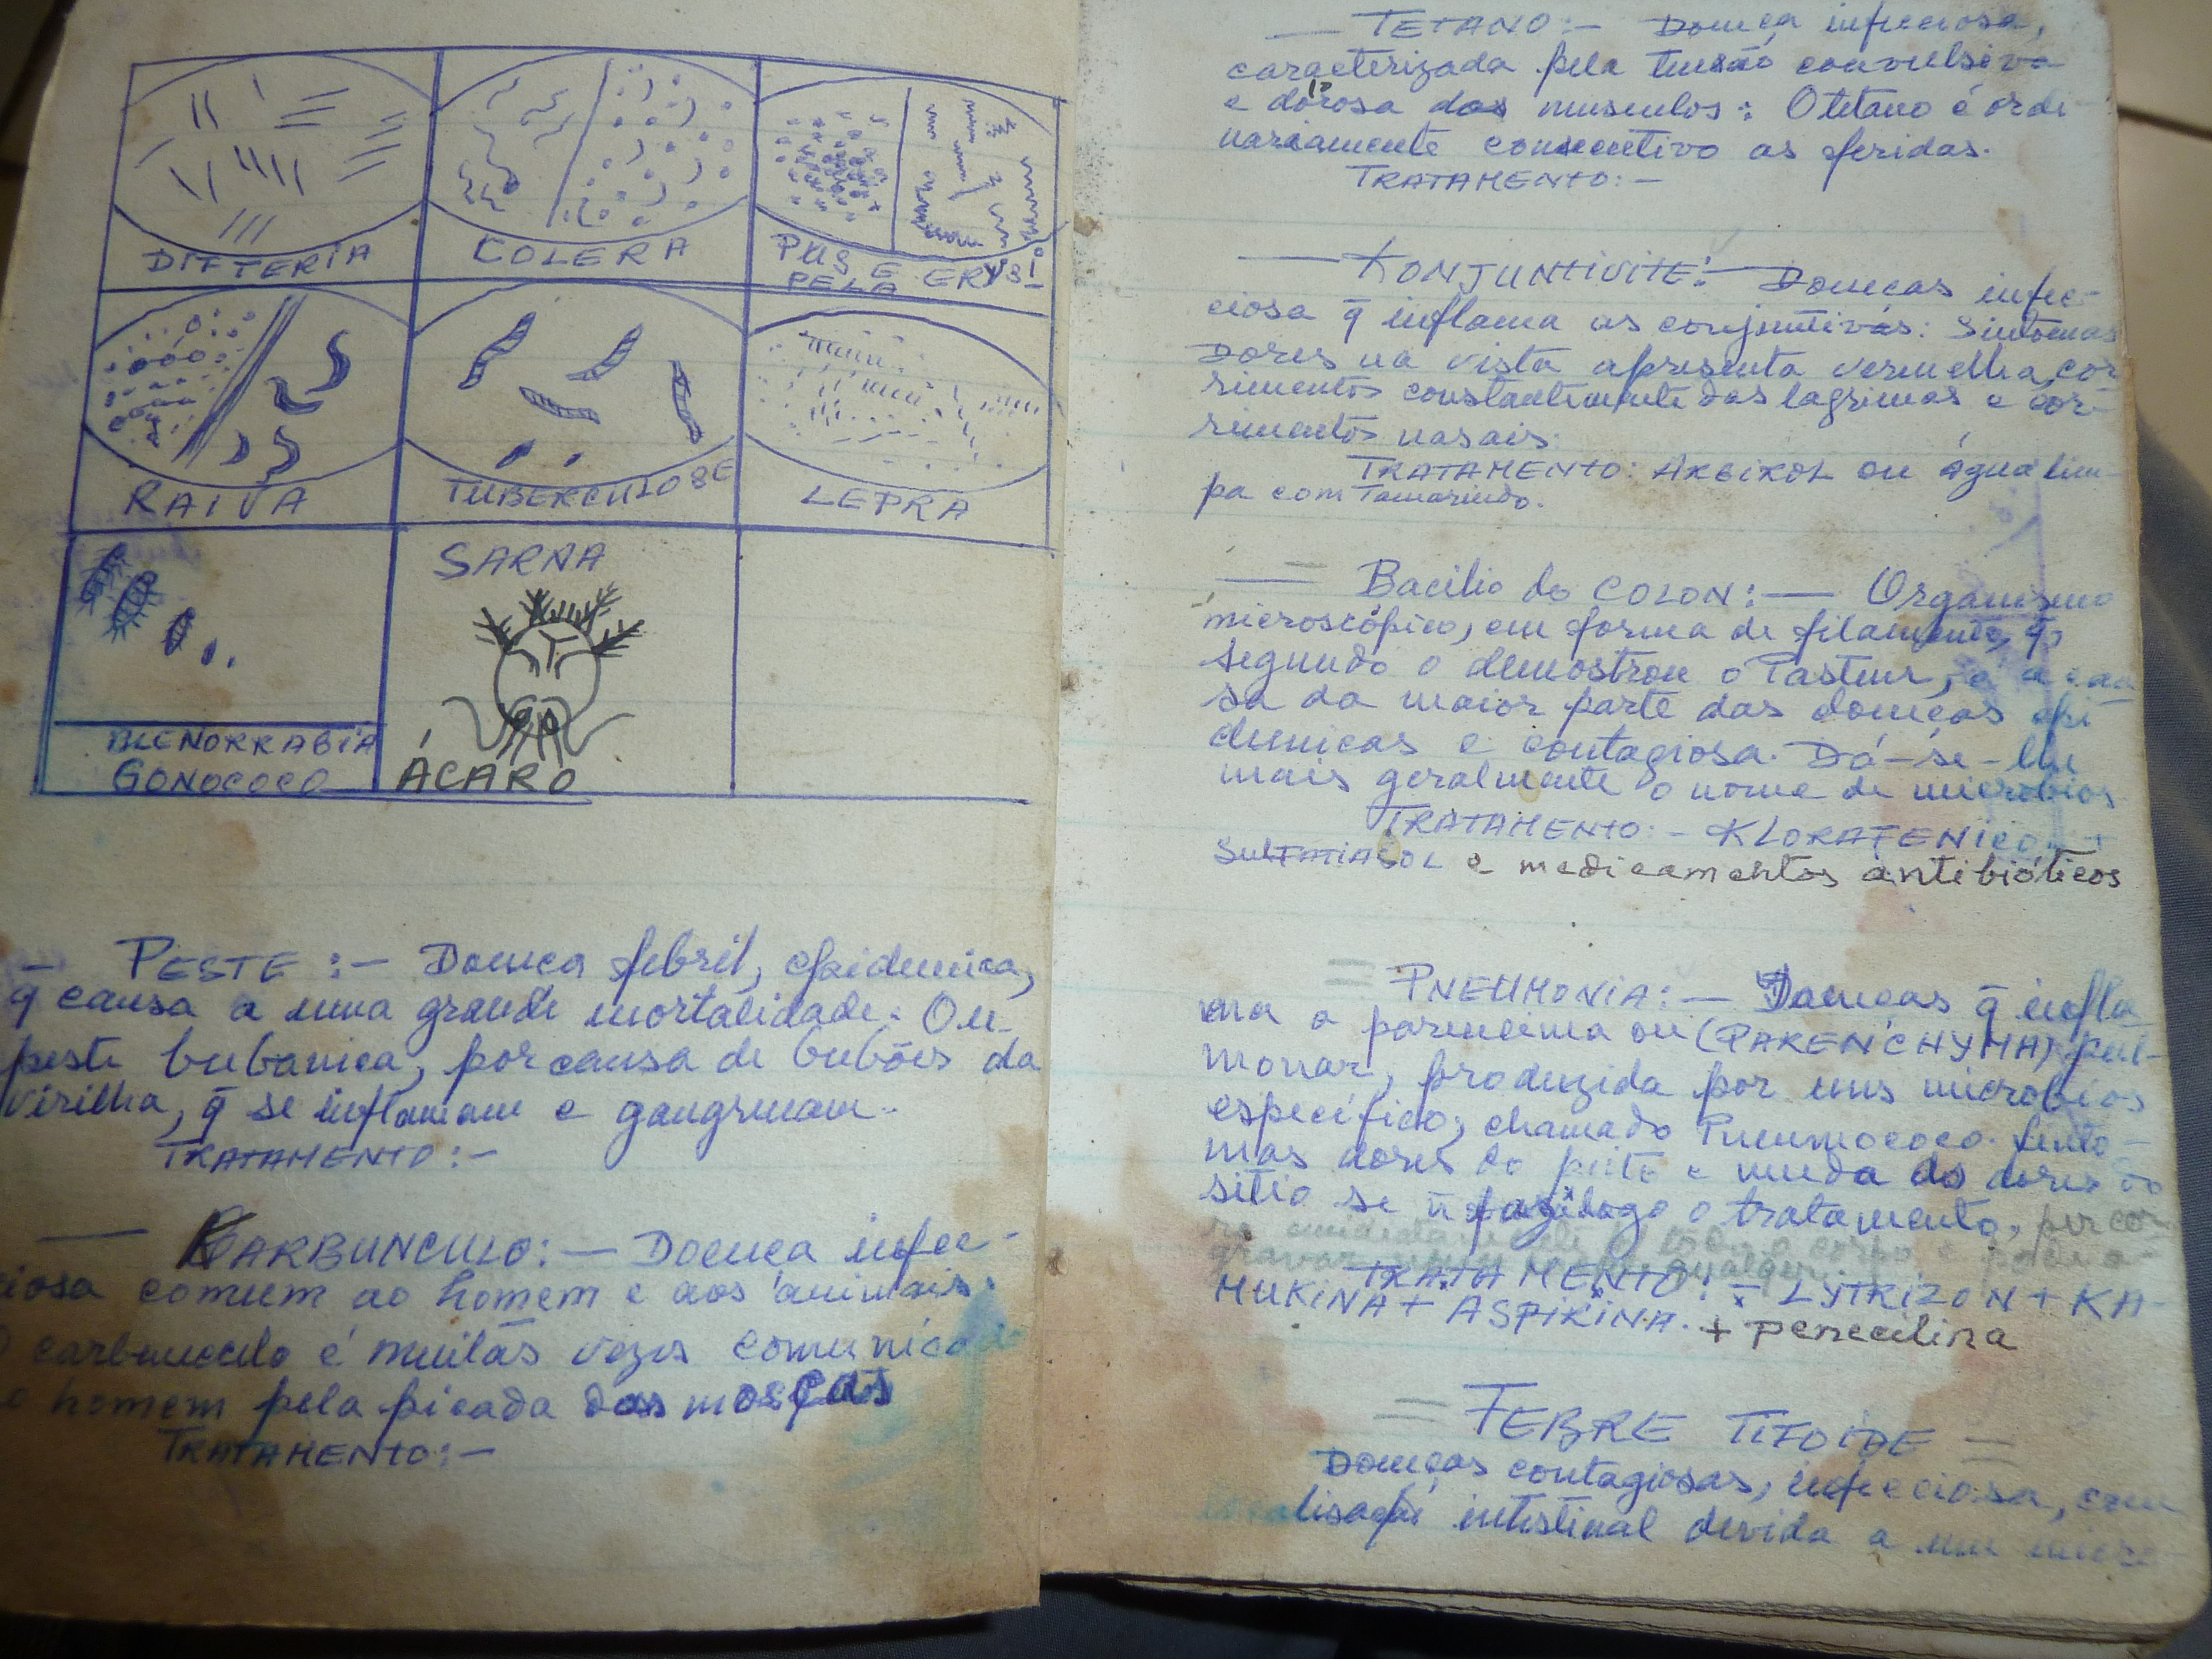 DIFTERIA
COLERA
PUS E ERYSI-
PELA
RAIVA
TUBERCULOSE
LEPRA
BLENORRAGIA
GONOCOCO
SARNA
ÁCARO
PESTE :- Doença febril, epidemica,
q̄ causa a uma grande mortalidade. Ou
peste bubanica, por causa de bubões da
virilha, q̄ se inflamam e gangrenam.
TRATAMENTO:-
KARBUNCULO:- Doença infec-
ciosa comum ao homem e aos animais.
O carbunculo é muitas vezes comunicado
o homem pela picada das moscas
TRATAMENTO:-
TETANO:- Doença infecciosa,
caracterizada pela tensão convulsiva
e dorosa dos musculos: O tetano é ordi-
nariamente consecutivo as feridas.
TRATAMENTO:-
KONJUNTIVITE:- Doenças infec-
ciosa q̄ inflama as conjuntivas: Sintomas
Dores na vista apresenta vermelha, cor-
rimentos constantemente das lagrimas e cor-
rimentos nasais.
TRATAMENTO: ARGIROL ou água lim-
pa com Tamarindo.
Bacilio do COLON:- Organismo
microscópico, em forma de filamento, q̄,
segundo o demostrou o Pasteur, é a cau
sa da maior parte das doenças epi
demicas e contagiosa. Dá-se-lhe
mais geralmente o nome de microbios
TRATAMENTO:- KLORAFENICOL +
SULFATIASOL e medicamentos antibióticos
= PNEUMONIA:- Doenças q̄ infla
ma a parencima ou (PARENCHYMA) pul-
monar, produzida por uns microbios
específico, chamado Pneumococo. Sinto-
mas dores do peito e muda do dores do
sitio se ñ faz logo o tratamento, percor
TRATAMENTO:- LYTRIZON + KA-
MUKINA + ASPIRINA. + penecilina
= FEBRE TIFOIDE =
Doenças contagiosas, infecciosa, com
localisação intestinal devida a um micro-